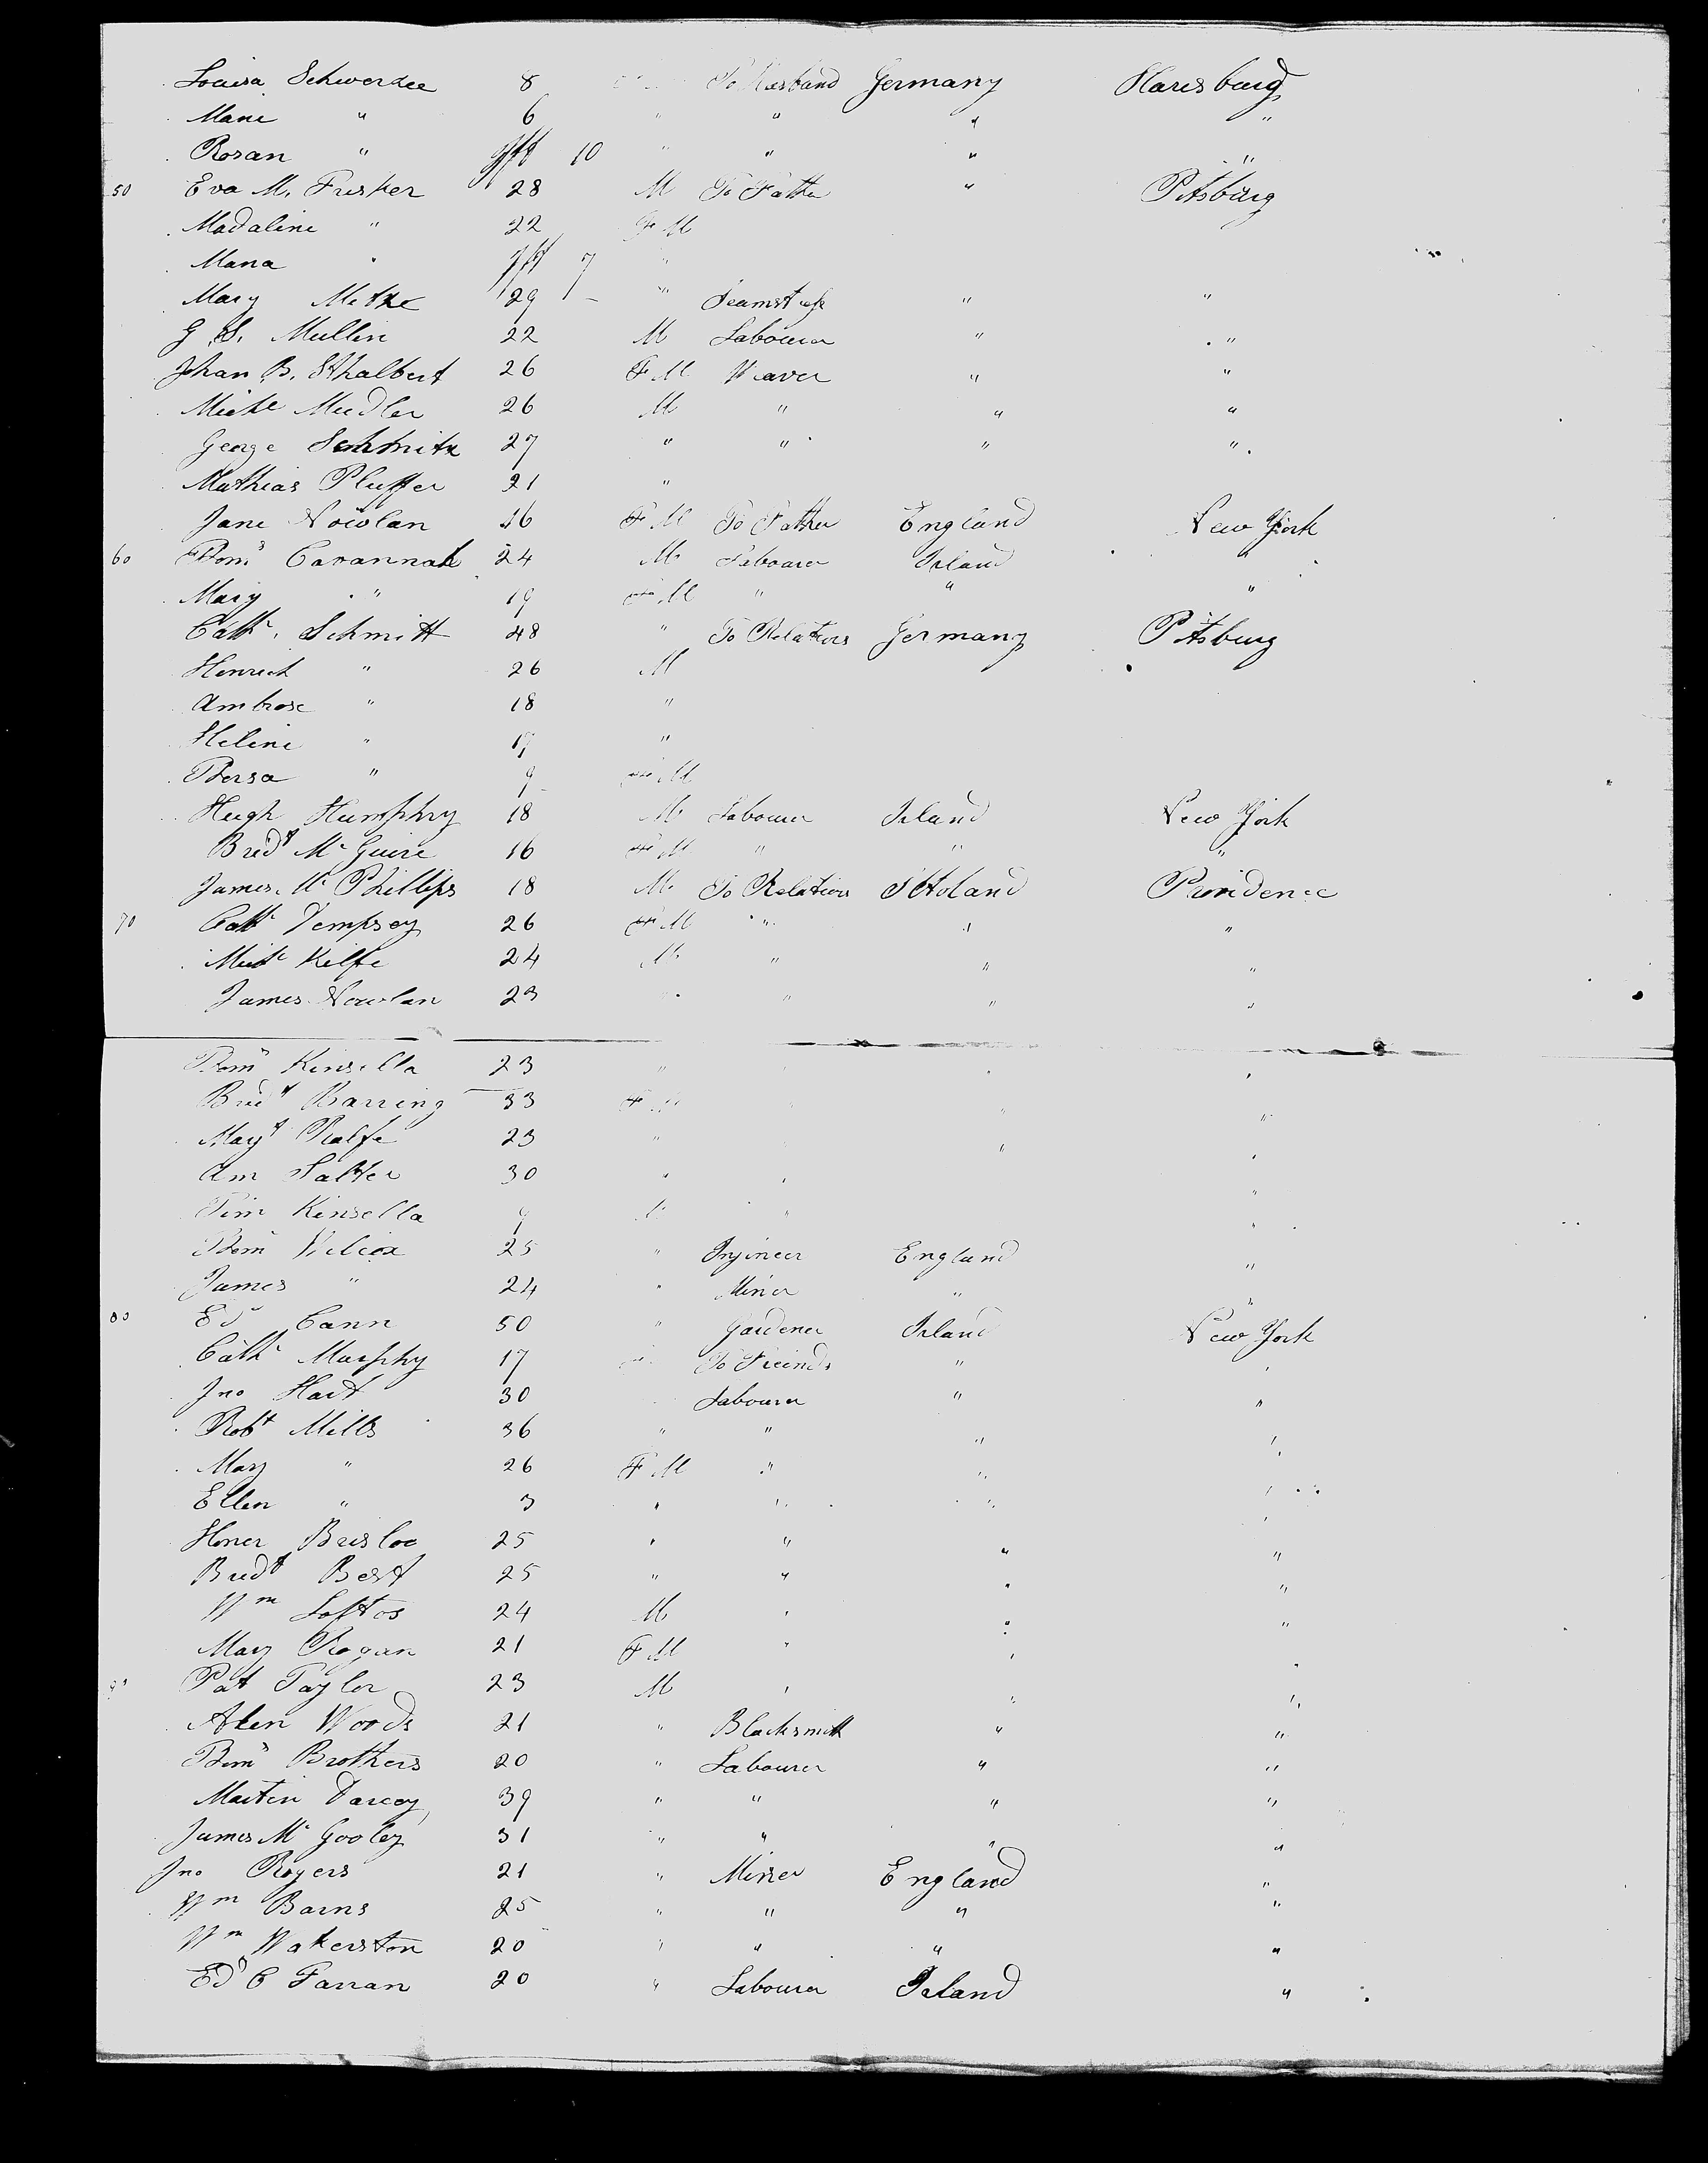 Louisa Schwerdee 8 To Husband Germany Haresburg
Marie " 6 " " " "
Rosan " Inft 10 " " " "
50 Eva M. Fusker 28 M To Father " Pitsburg
Madaline " 22 F M
Maria " Inft 7 "
Mary Metze 29 – " Seamstress " "
G S. Mullin 22 M Labourer " "
Johan B. Sthalbert 26 F M Weaver " "
Miche Mudler 26 M " " "
George Schmitz 27 " " " "
Mathias Pluffer 21 "
Jane Nowlan 16 F M To Father England New York
60 Thoms Cavannah 24 M Labourer Irland "
Mary " 19 F M " " "
Cathe. Schmitt 48 " To Relations Germany Pitsburg
Henrich " 26 M
Ambrose " 18 "
Heline " 17 "
Thersa " 9 F M
Hugh Humphry 18 M Labourer Irland New York
Bridt Mc Guire 16 F M " " "
James Mc Phillips 18 M To Relations Providence
70 Cathe Dempsey 26 F M " " "
Miche Kelfe 24 M " " "
James Nowlan 23 " " " "
Thoms Kinsella 23 " " " "
Bridt Barring 33 F M " " "
Magt Rolfe 23 " " " "
Ann Salter 30 " " "
Tim Kinsella 9 M " "
Thoms Wilcox 25 " Injineer England "
James " 24 " Miner " "
80 Edd Cann 50 " Gardener Irland New York
Cathe Murphy 17 To Freinds " "
Jno Hart 30 Labourer " "
Robt Mills 36 " " " "
Mary " 26 F M " " "
Ellen " 3 " " " "
Honer Brisloe 25 " " " "
Bridt Best 25 " " " "
Wm Loftos 24 M " " "
Mary Rogan 21 F M " " "
90 Pat Taylor 23 M " " "
Allen Woods 21 " Blacksmith " "
Thoms Brothers 20 " Labourer " "
Martin Darcey 39 " " " "
James Mc Gooley 31 " " " "
Jno Rogers 21 " Miner England "
Wm Barns 25 " " " "
Wm Wakerston 20 " " " "
Edd C Farran 20 " Labourer Irland "